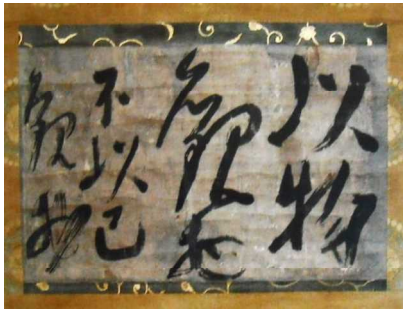 以物
觀物
不以己
觀物